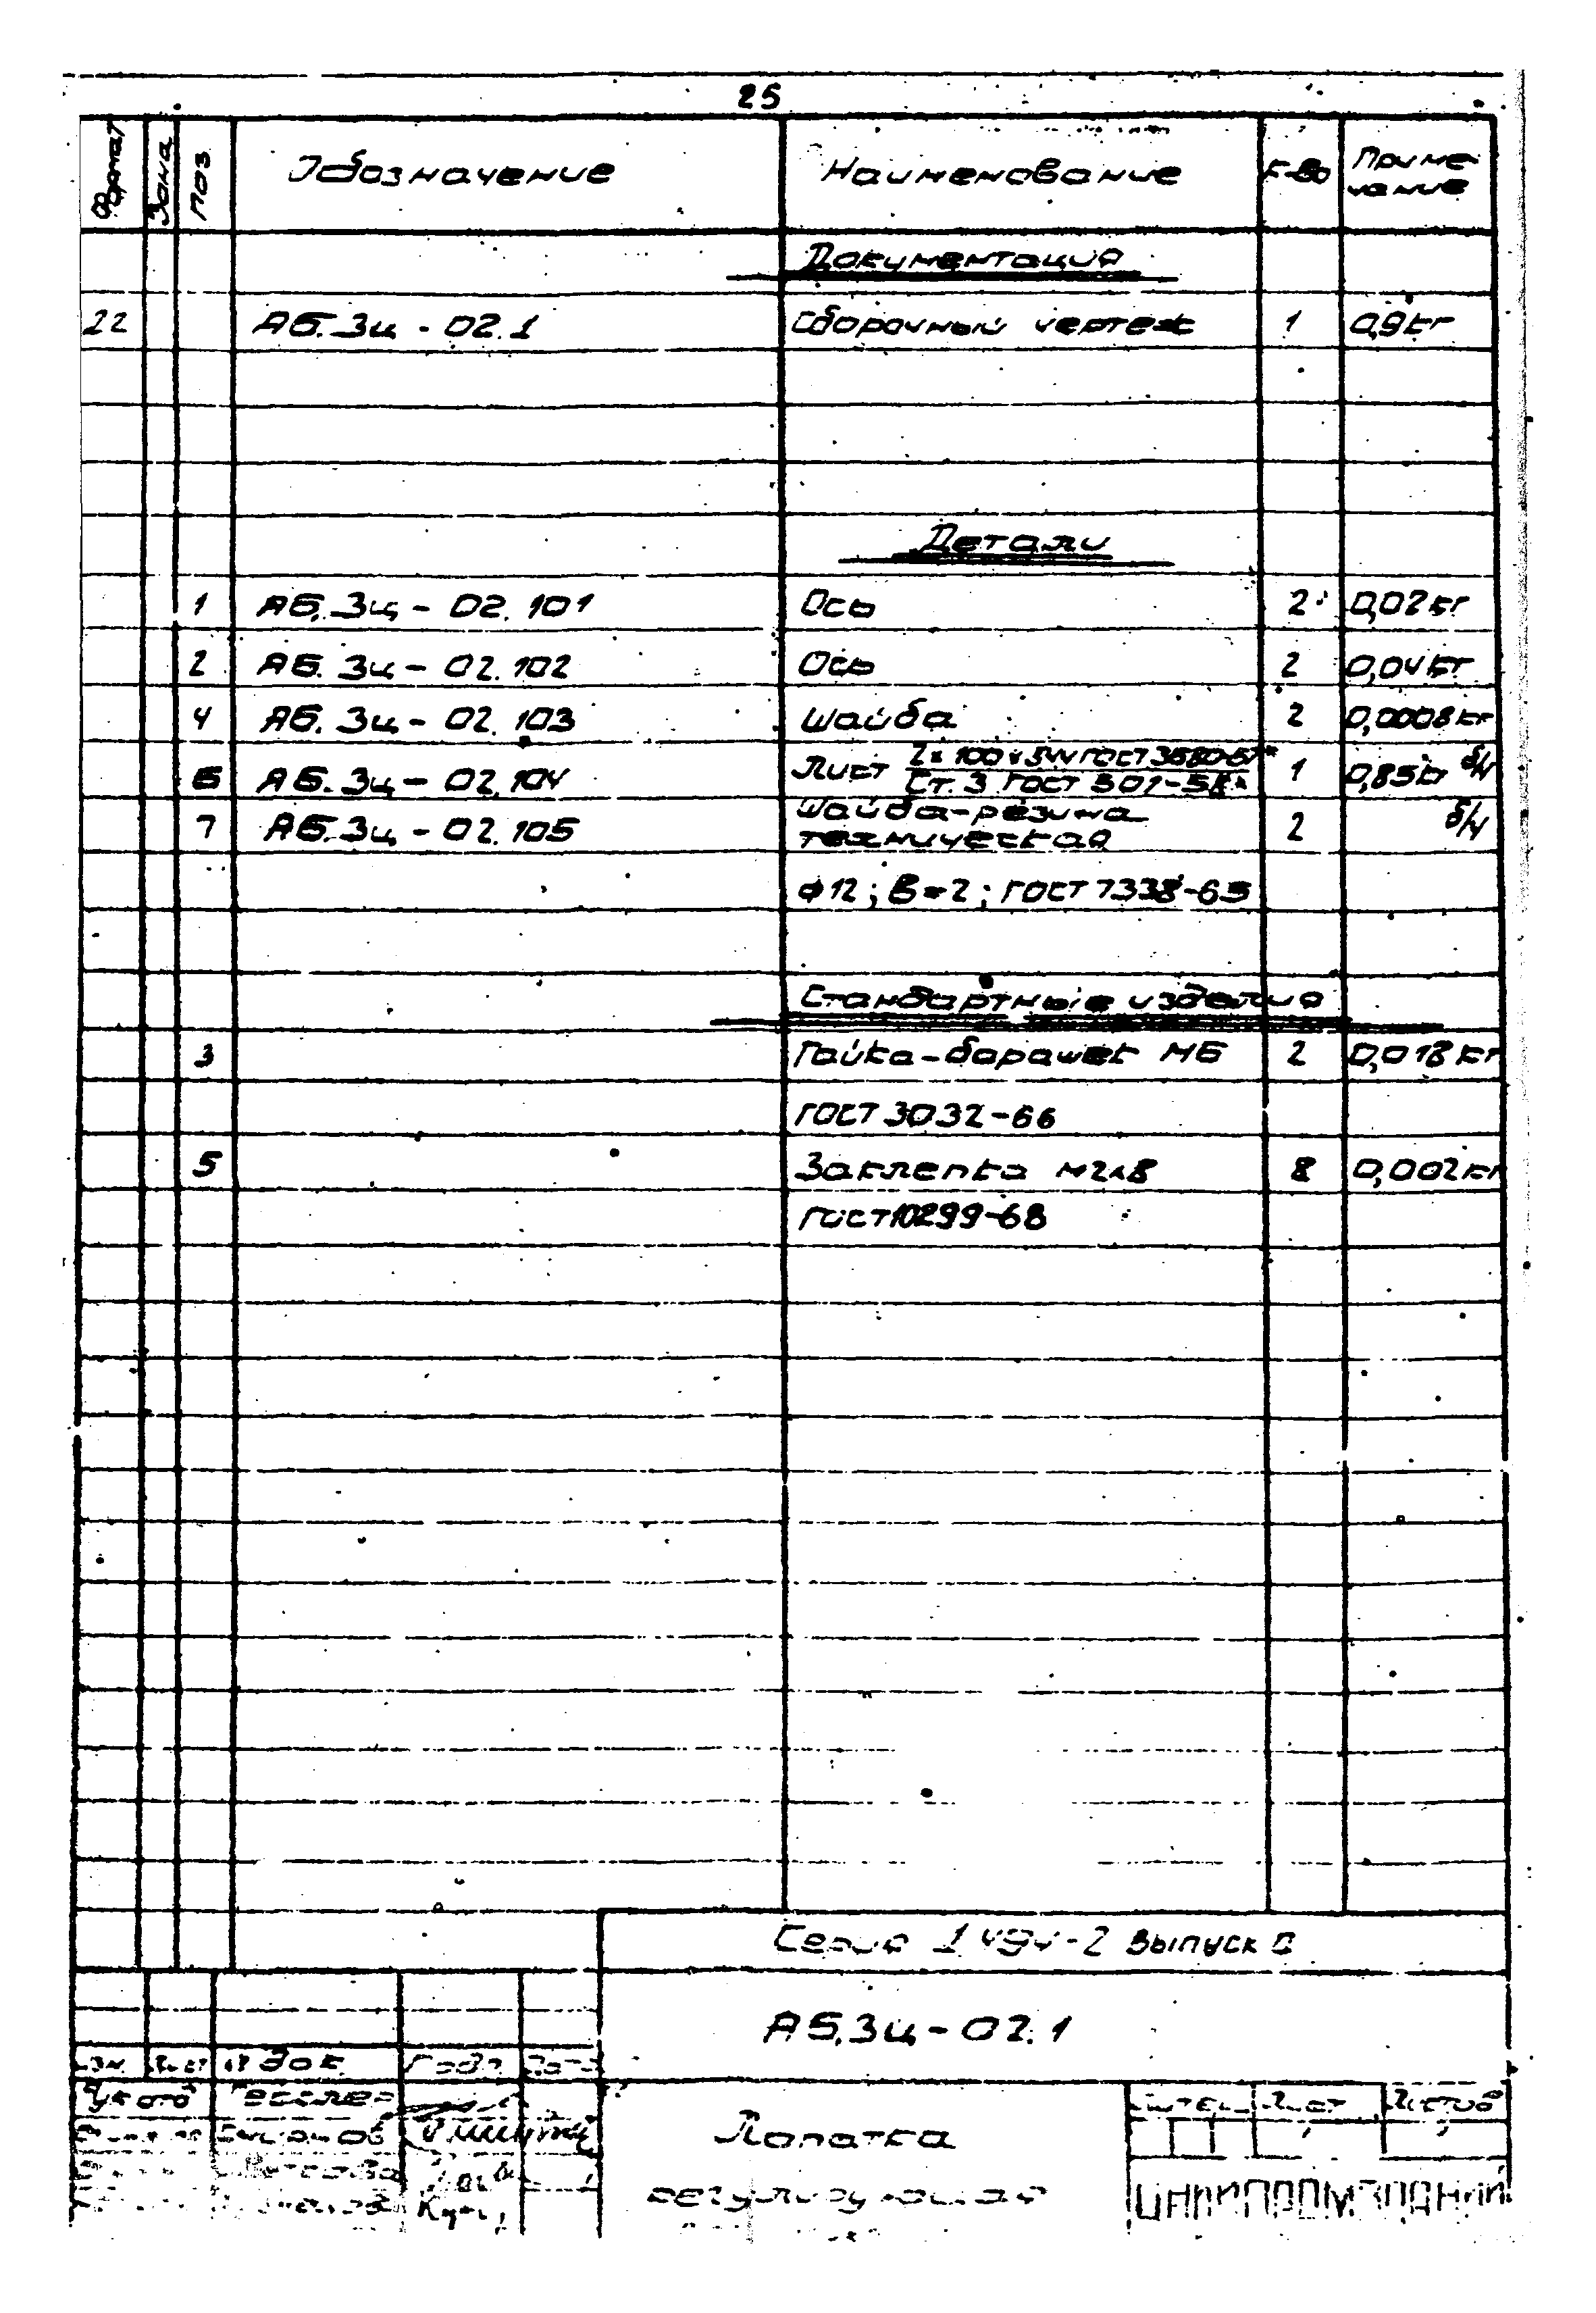 25
Формат Зона Поз. Обозначение Наименование К-во Приме-
чание
Документация
22 А6.3ц - 02.1 Сборочный чертеж 1 0,9кг
Детали
1 А6.3ц - 02.101 Ось 2 0,02кг
2 А6.3ц - 02.102 Ось 2 0,04кг
4 А6.3ц - 02.103 Шайба 2 0,0008кг
6 А6.3ц - 02.104 Лист 1 0,85кг б/ч
Ст. 3 ГОСТ
7 А6.3ц - 02.105 Шайба-резина
техническая 2 б/ч
ф12; В=2; ГОСТ 7338-65
Стандартные изделия
3 Гайка-барашек М6 2 0,018кг
ГОСТ 3032-66
5 Заклепка 8 0,002кг
ГОСТ 10299-68
Серия 1.494-2 Выпуск
А6.3ц - 02.1
Изм. Лист № док. Подп. Дата
Лопатка
регулирующая
Лист Листов
ЦНИИПРОМЗДАНИЙ